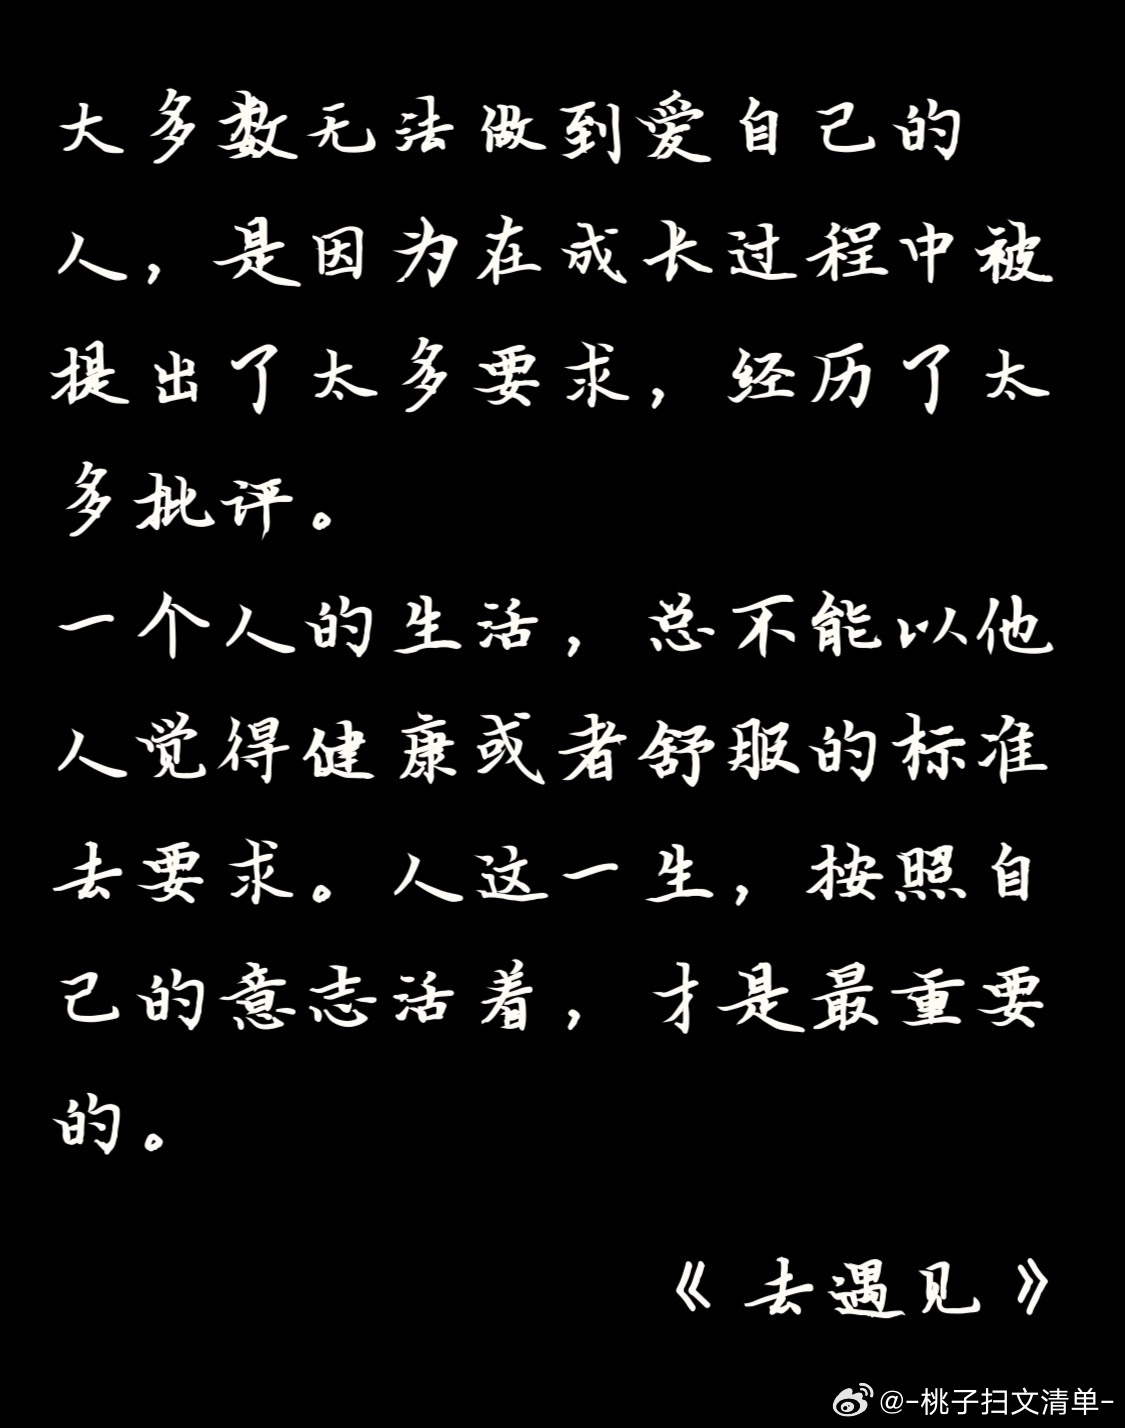 大多数无法做到爱自己的
人，是因为在成长过程中被
提出了太多要求，经历了太
多批评。
一个人的生活，总不能以他
人觉得健康或者舒服的标准
去要求。人这一生，按照自
己的意志活着，才是最重要
的。
《去遇见》
@-桃子扫文清单-